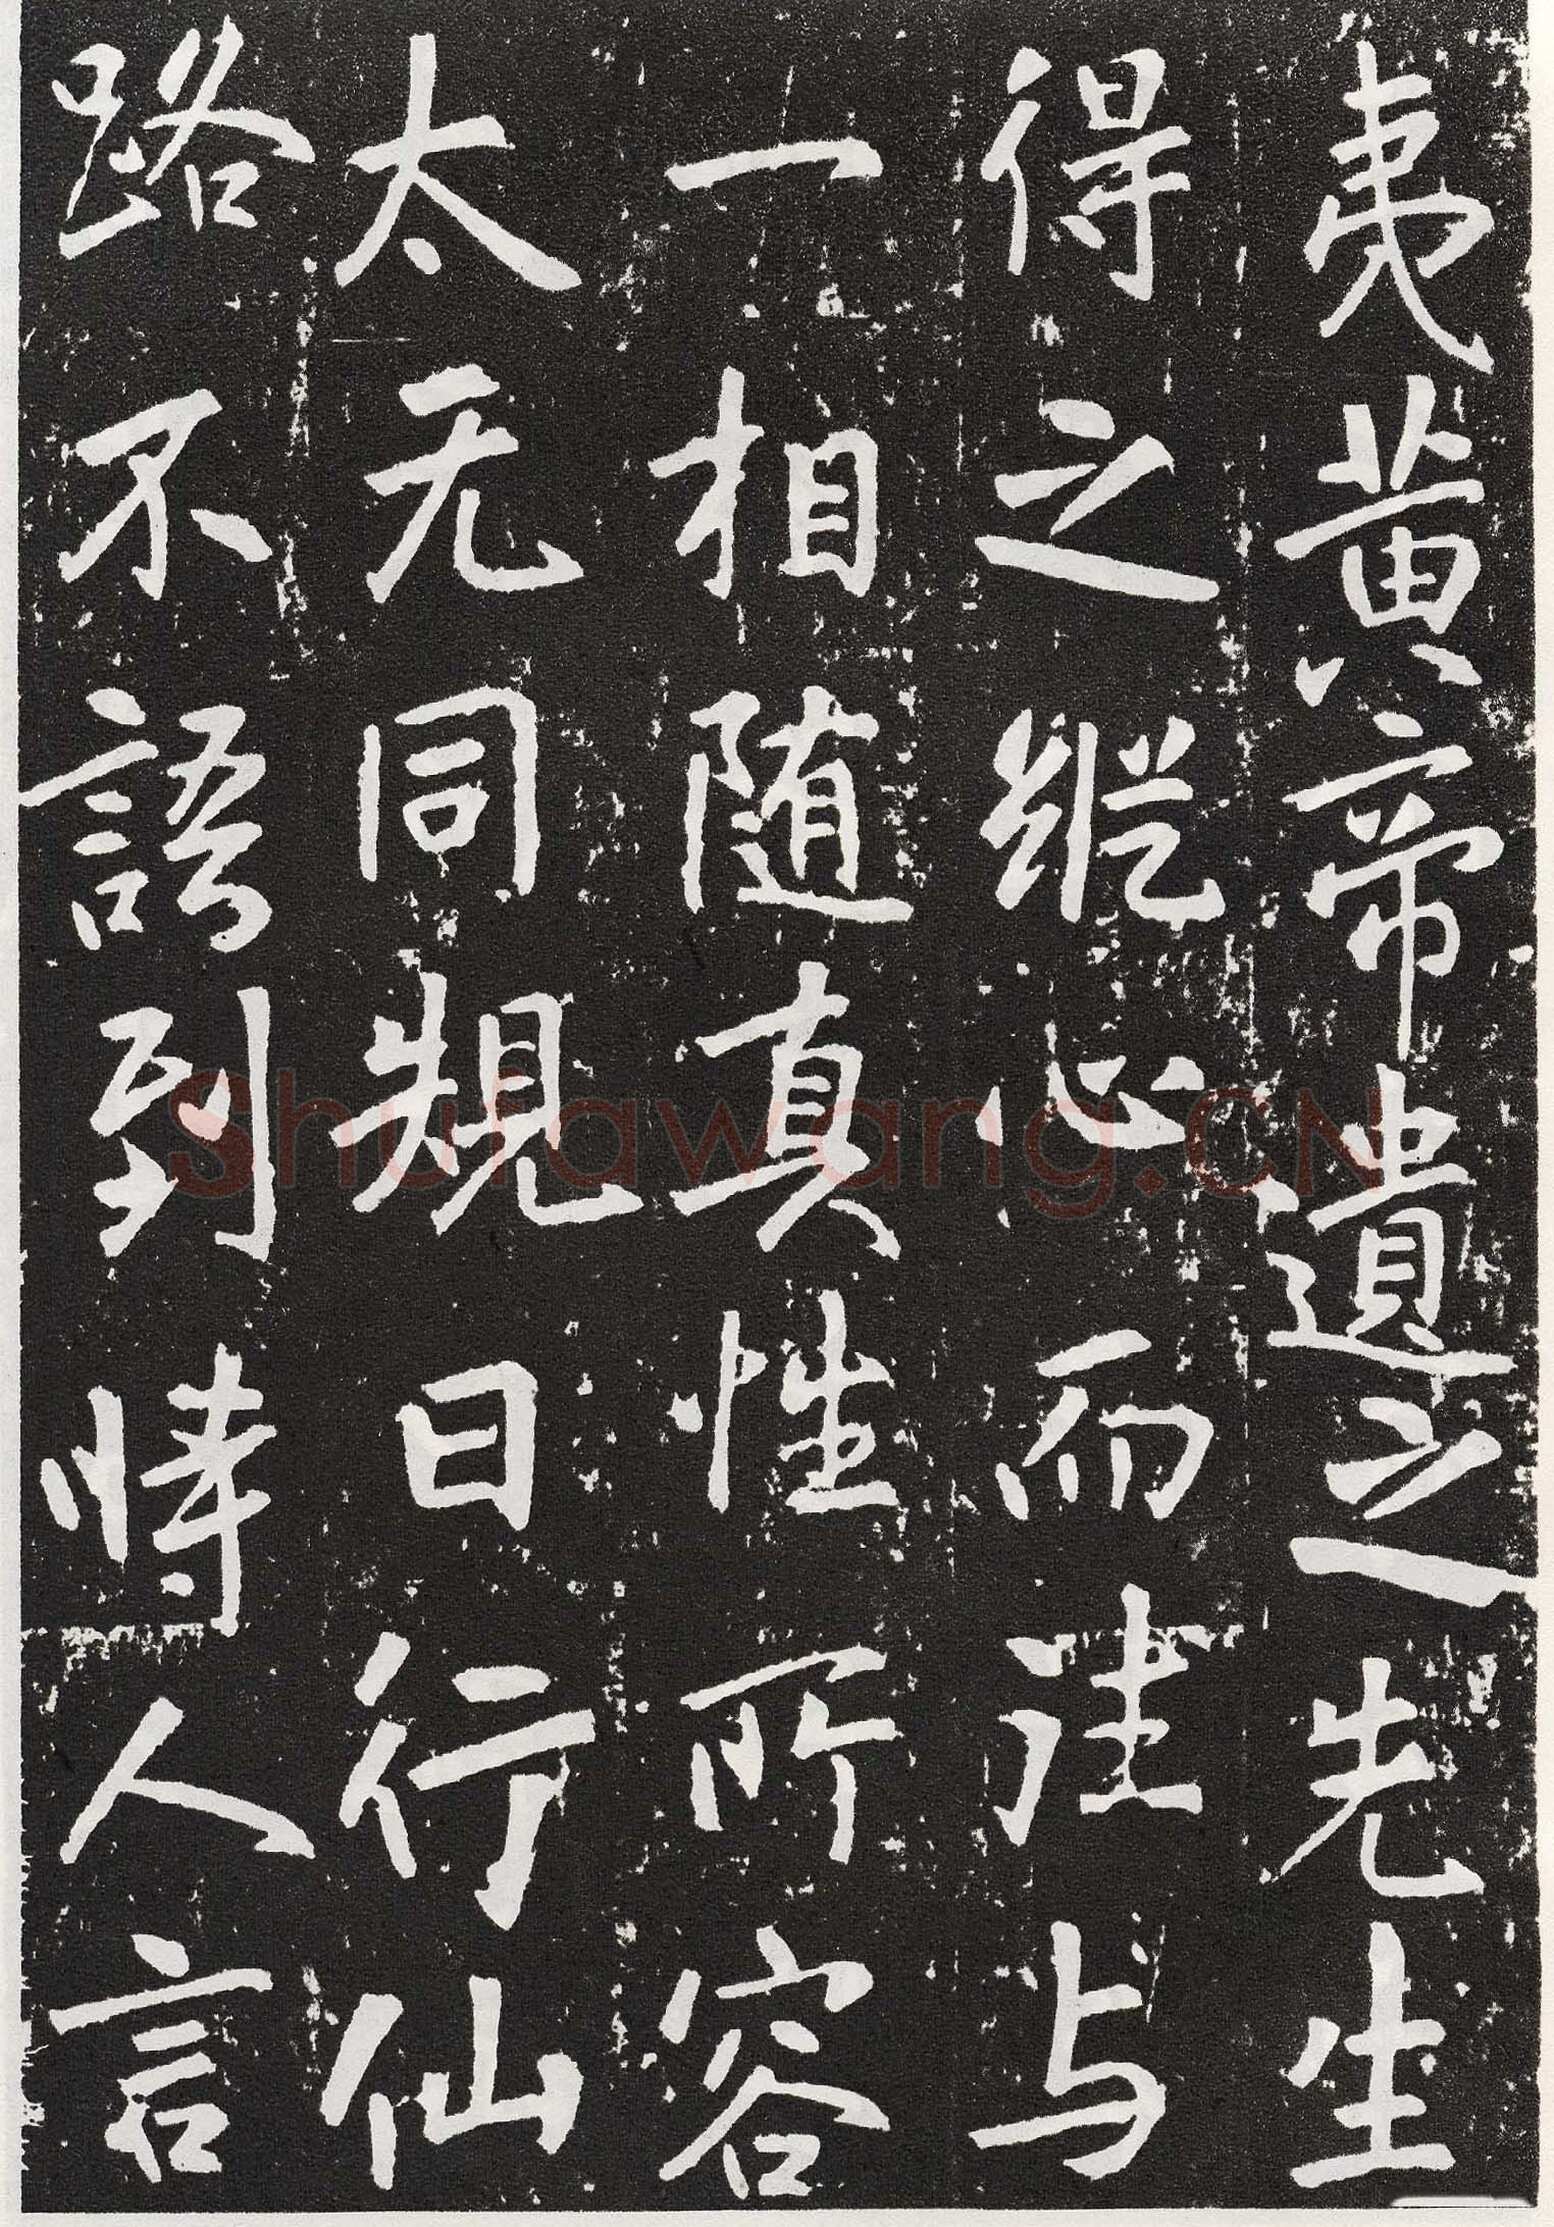 夷黄帝遺之先生
得之縱心而往与
一相随真性所容
太无同規日行仙
路不語到恃人言
Shufawang.CN